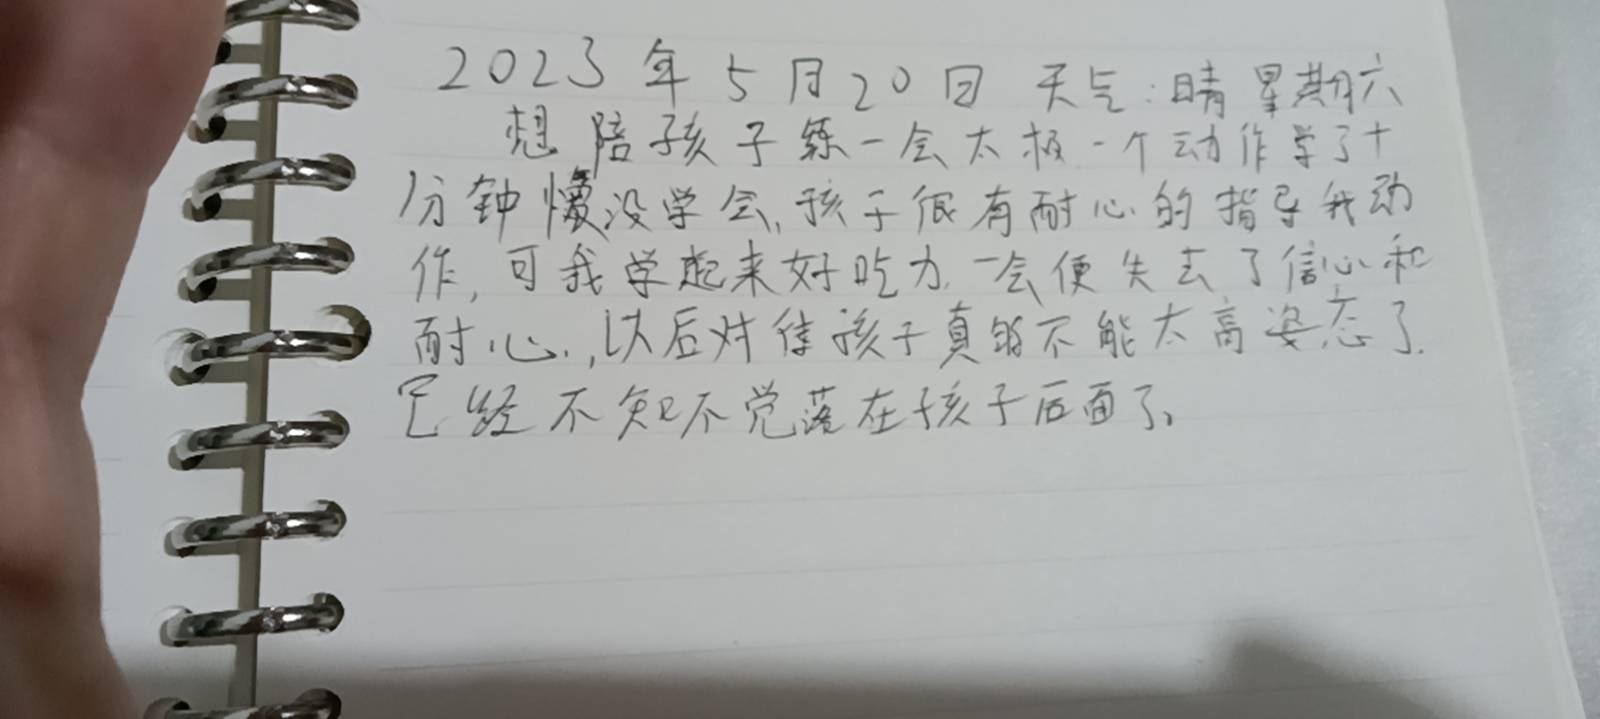 2023年5月20日 天气:晴 星期六
想陪孩子练一会太极一个动作学了十
分钟没学会,孩子很有耐心的指导我动
作,可我学起来好吃力,一会便失去了信心和
耐心.,以后对待孩子真的不能太高姿态了.
已经不知不觉落在孩子后面了。